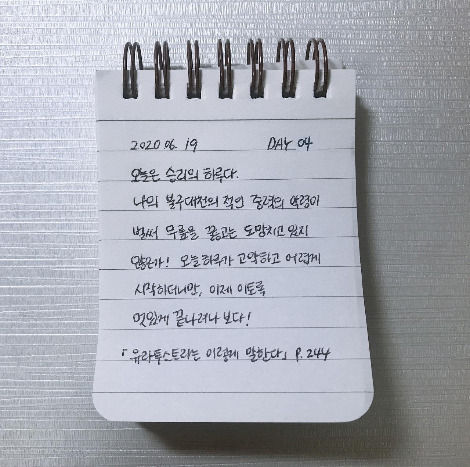 2020 06. 19 DAY 04
오늘은 승리의 하루다.
나의 불구대천의 적인 중력의 악령이
벌써 무릎을 꿇고는 도망치고 있지
않은가! 오늘 하루가 고약하고 어렵게
시작하더니만, 이제 이토록
멋있게 끝나려나 보다!
「차라투스트라는 이렇게 말한다」 P. 244